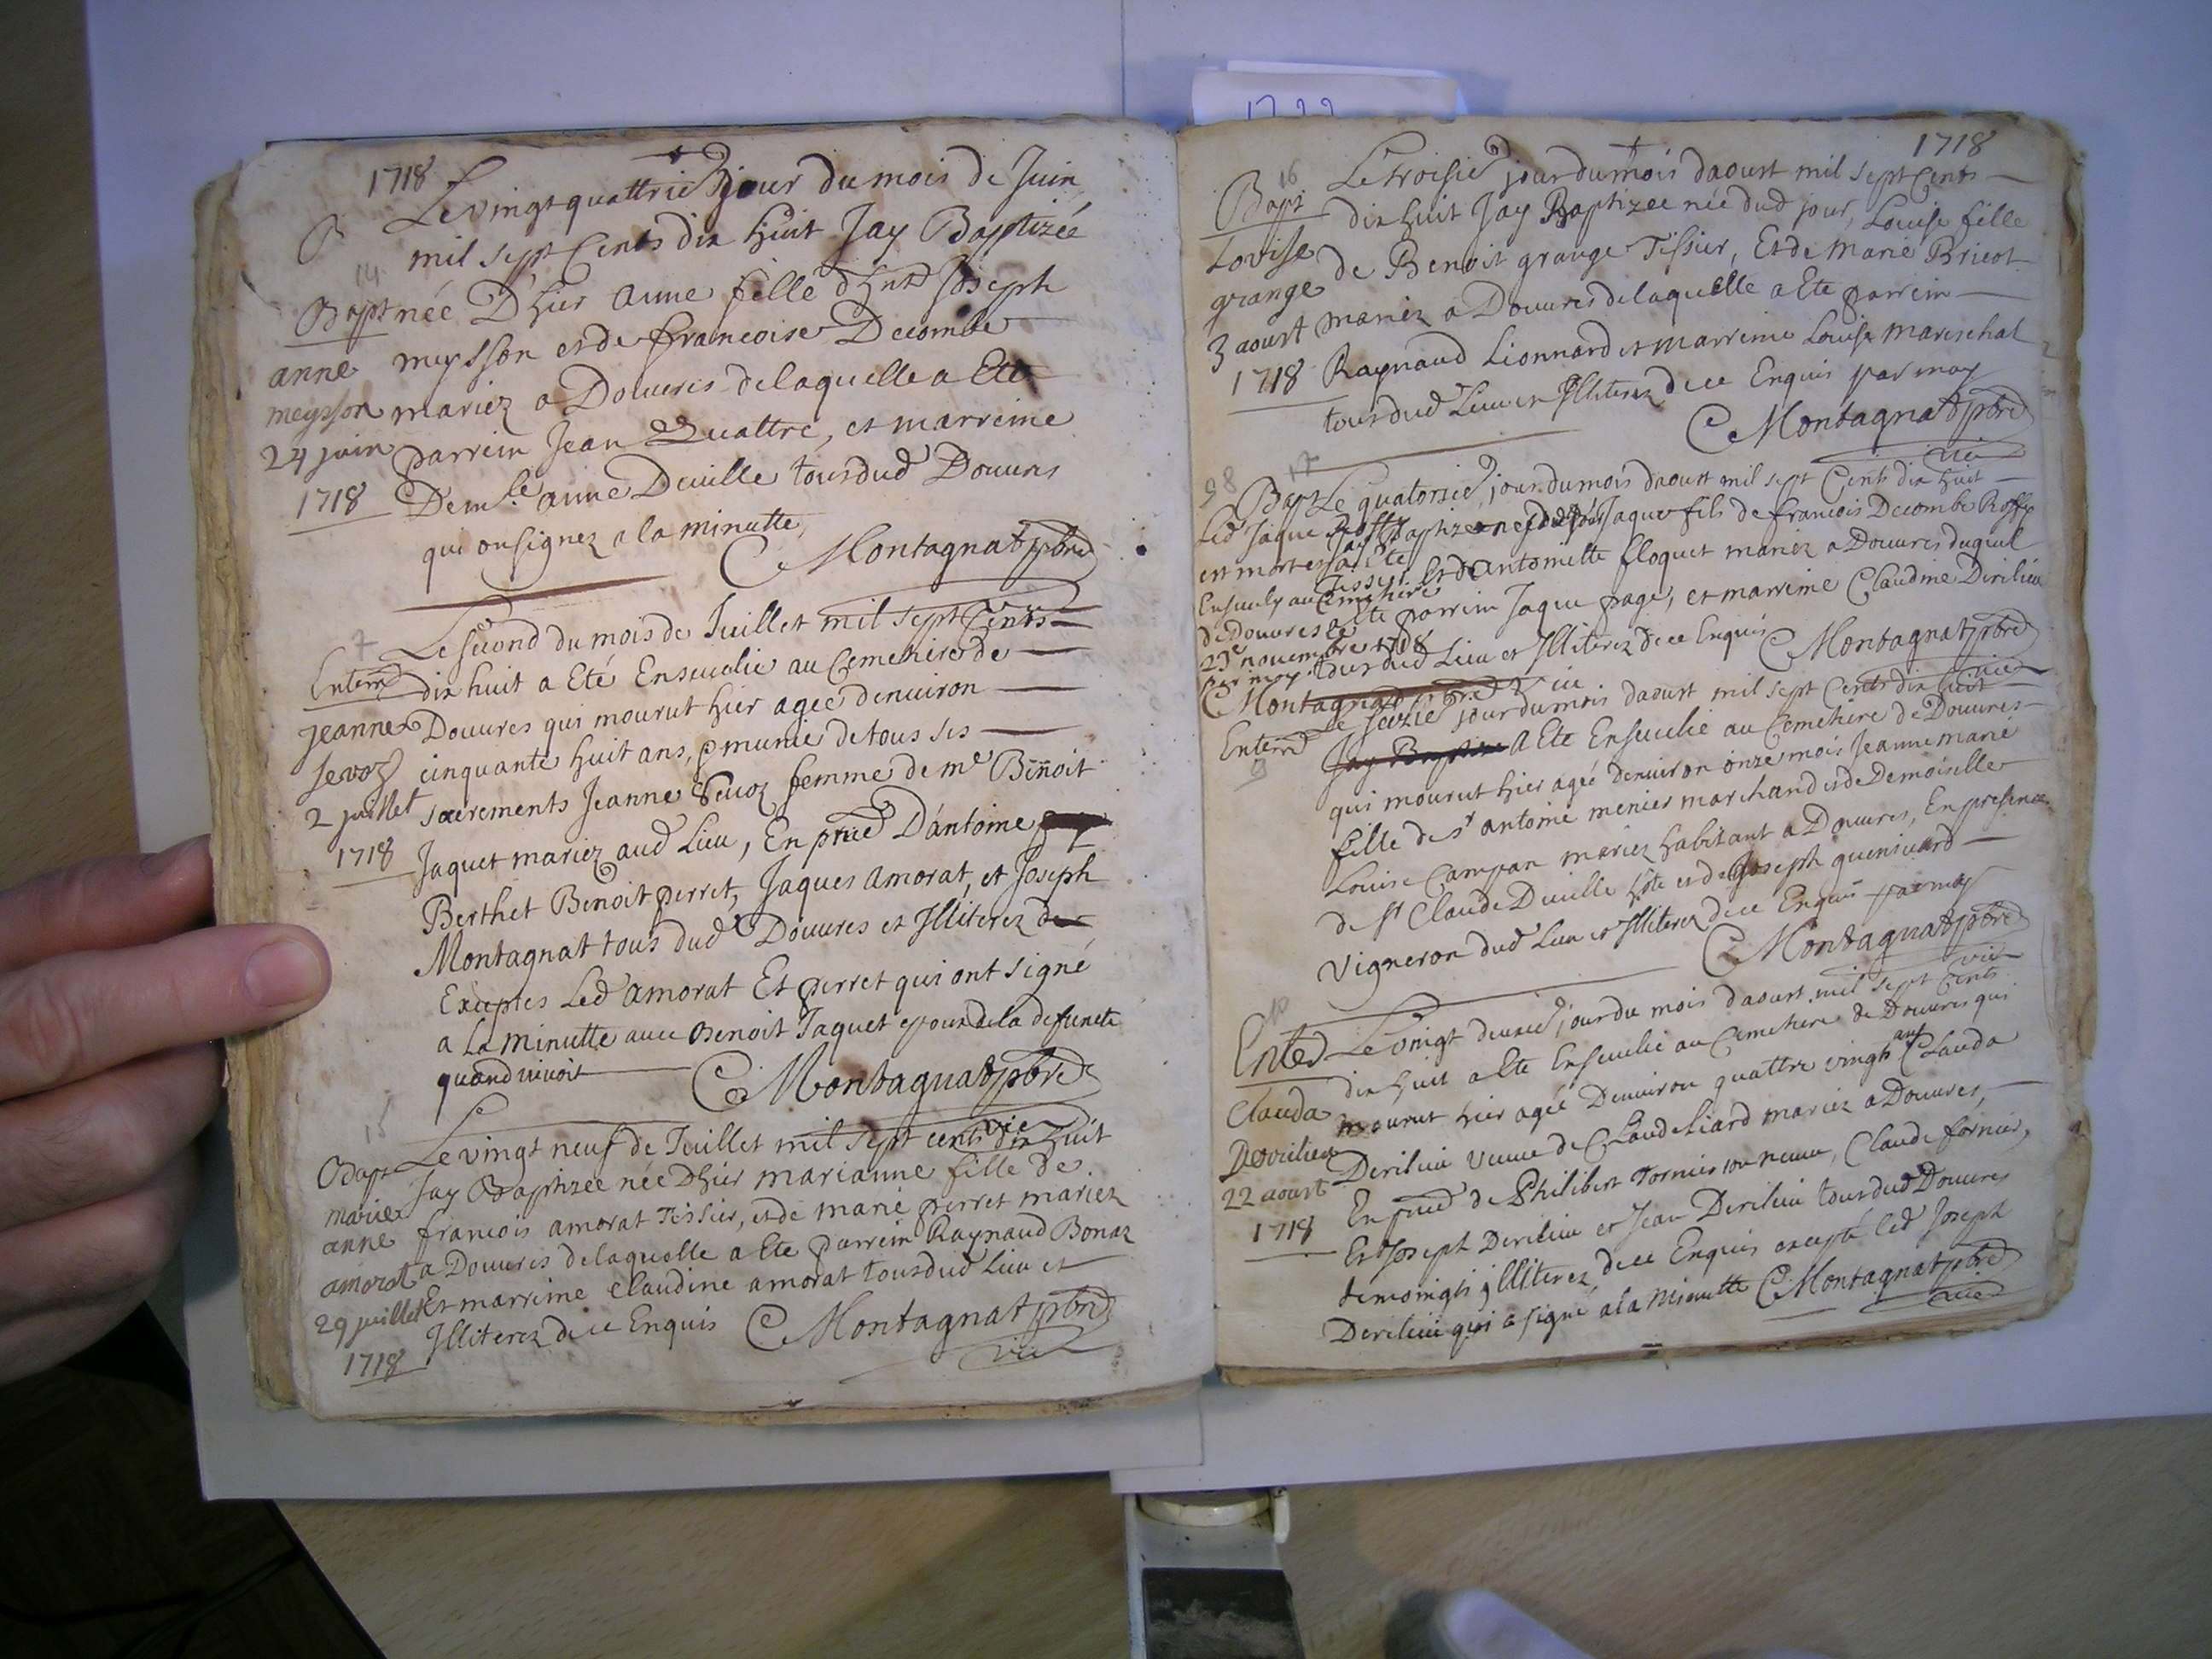 1722
1718
Le vingt quattrie jour du mois de Juin
mil sept Cents dix huit Jay Baptizée
14
Bapt née D'hier anne fille d'hnd Joseph
anne meysson et de francoise Decombe
meysson mariez a Douures de laquelle a Ete
24 juin parrein Jean Quattre, et marreine
1718 Demle anne Deuille tous dud Douures
qui on signez a la minutte,
C Montagnat pbre
vic
7
Le second du mois de Juillet mil sept Cents
Enterrt dix huit a Eté Enseuelie au Cemethire de
jeanne Douures qui mourut hier agée denuiron
sevoz cinquante huit ans, munie de tous ses
2 juillet sacrements Jeanne Seuoz femme de me Benoit
1718 Jaquet mariez aud Lieu, En pnce D'antoine
Berthet Benoit perret, Jaques Amorat, et Joseph
Montagnat tous dud Douures et Illiterez de
Exceptes Led amorat Et perret qui ont signé
a La minutte auec Benoit Jaquet epoux de la defuncte
quand viuoit
C Montagnat pbre
vic
15
Le vingt neuf de Juillet mil sept cents dix huit
Bapt Jay Baptizee née D'hier marianne fille de
marie francois amorat Tissier, et de marie perret mariez
anne a Douures de laquelle a Ete parrein Raynaud Bonaz
amorat Et marreine Claudine amorat tous dud Lieu et
29 juillet Illiterez de ce Enquis C Montagnat pbre
1718 vic
1718
16
Le troisie jour du mois daoust mil sept Cents
Bapt dix huit Jay Baptizee née dud jour, Louise fille
Lovise de Benoit grange Tissier, Et de Marie Bricot
grange mariez a Douures de laquelle a Ete parrein
3 aoust Raynaud Lionnard et marreine Louise Mareschal
1718 tous dud Lieu et Illiterez de ce Enquis par moy
C Montagnat pbre
vic
98 17
Bapt Le quatorzie jour du mois daoust mil sept Cents dix huit
Jay Baptize né dud jour Jaque fils de francois Decombe Roffy
Tissier Et de antoinette floquet mariez a Douures duquel
a Ete parrein Jaque page, et marreine Claudine Dirilieu
tous dud Lieu et Illiterez de ce Enquis C Montagnat pbre
vic
Led Jaque Roffy
est mort et a Ete
Enseuely au Cemethire
de Douures le
23e nouembre 1718
par moy
C Montagnat pbre vic
Le seizie jour du mois daoust mil sept Cents dix huit
Enterrt Jay Baptize A Ete Enseuelie au Cemethire de Douures
9
qui mourut hier agée denuiron onze mois Jeanne marie
fille de sr antoine menier marchand et de Demoiselle
Louise Campan mariez habitant a Douures, En presence
de sr Claude Deuille hôte et de Joseph quensuard
Vigneron dud Lieu et Illiterez de ce Enquis par moy
C Montagnat pbre
vic
10
Enterd Le vingt deuxie jour du mois daoust mil sept Cents
dix huit a Ete Enseuelie au Cemethire de Douures qui
Clauda mourut hier agée Denuiron quattre vingts ans Clauda
Derilieu Derilieu veuue de Claude Liard mariez a Douures,
22 aoust En pnce de Philibert Tornier son neueu, Claude fornier,
1718 Et Joseph Derilieu et Jean Derilieu tous dud Douures
temoingts illiterez de ce Enquis excepté led Joseph
Derilieu qui a signé a la Minutte C Montagnat pbre
vic